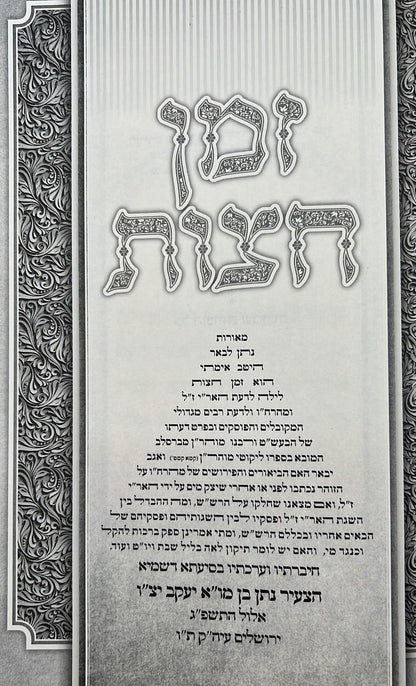 זמן
חצות
מאורות
נתן לבאר
היטב אימתי
הוא זמן חצות
לילה לדעת האר"י ז"ל
ומהרח"ו ולדעת רבים מגדולי
המקובלים והפוסקים ובפרט דעתו
של הבעש"ט והבנו מוהר"ן מברסלב
המובא בספרו ליקוטי מוהר"ן (קמא קמט) ואגב
יבאר האם הביאורים והפירושים של מהרח"ו על
הזוהר נכתבו לפני או אחרי שיצק מים על ידי האר"י
ז"ל, ואם מצאנו שחלקו על הרש"ש, ומה ההבדל בין
השגת האר"י ז"ל ופסקיו לבין השגותיהם ופסקיהם של
הבאים אחריו ובכללם הרש"ש, ומתי אמרינן ספק ברכות להקל
וכנגד מי, והאם יש לומר תיקון לאה בליל שבת ויו"ט ועוד.
חיברתיו וערכתיו בסיעתא דשמיא
הצעיר נתן בן מו"א יעקב יצ"ו
אלול התשפ"ג
ירושלים עיה"ק ת"ו